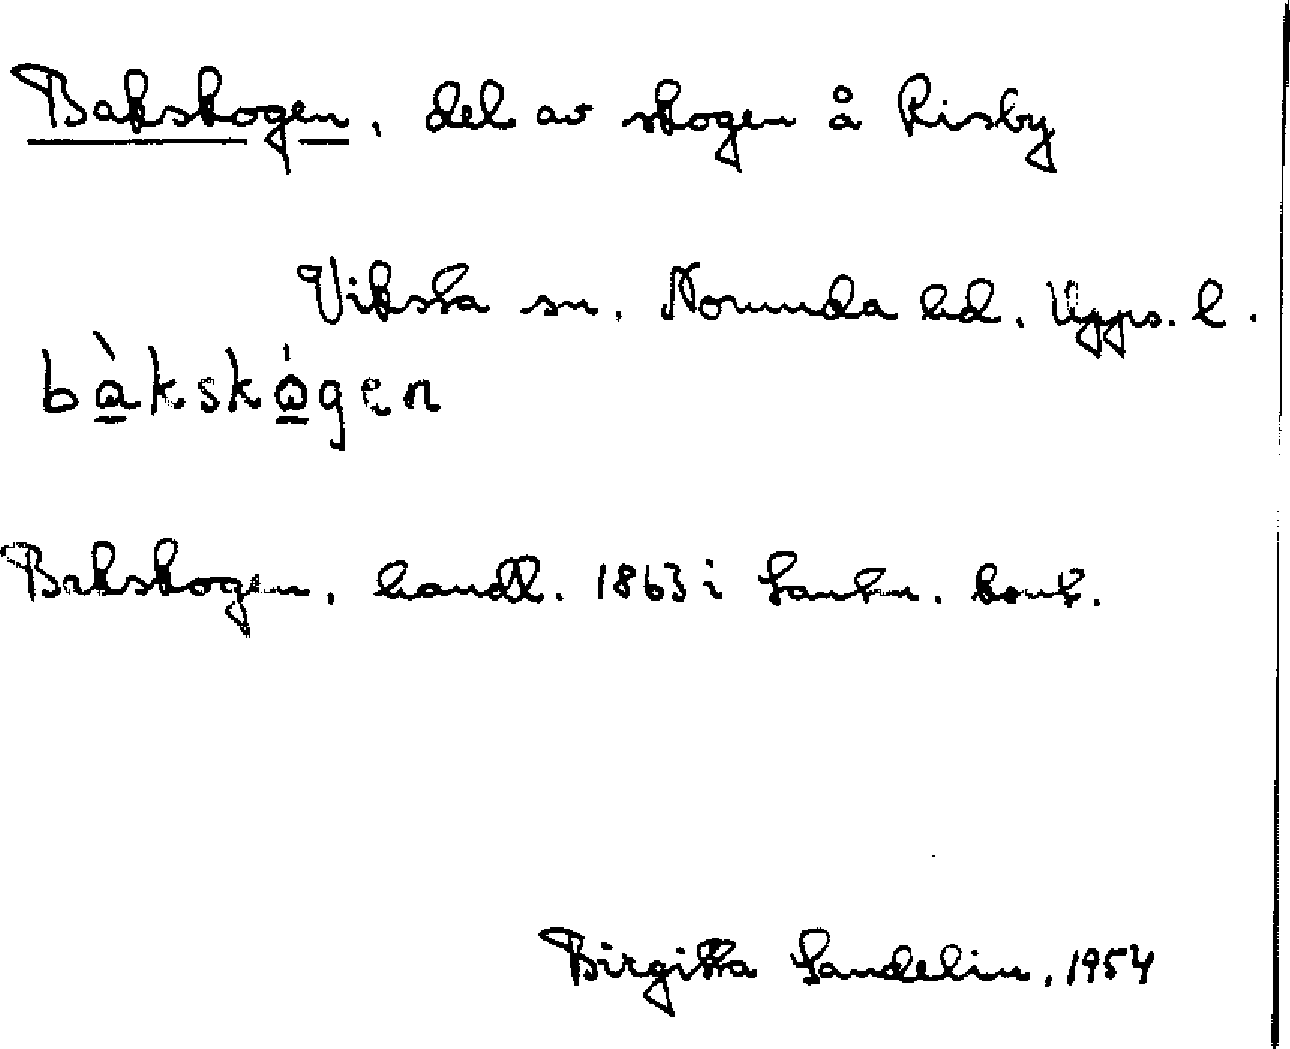 Bakskogen, del av skogen å Risby
Viksta sn. Norunda hd. Upps. l.
bàkskógen
Bakskogen, handl. 1863 i Lantm. kont.
Birgitta Sandelin, 1954